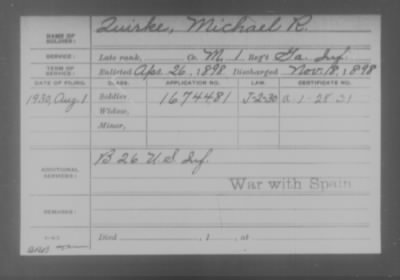 NAME OF SOLDIER: Quirke, Michael R.
SERVICE: Late rank, Co. M. 1 Reg't Ga. Inf.
TERM OF SERVICE: Enlisted Apr. 26, 1898 Discharged Nov. 18, 1898
DATE OF FILING. CLASS. APPLICATION NO. LAW. CERTIFICATE NO.
1930, Aug. 1 Soldier. 1674481 J-2-30 a 1-28-31
Widow,
Minor,
B 26 U S Inf.
ADDITIONAL SERVICES:
War with Spain
REMARKS:
Died , 1 , at